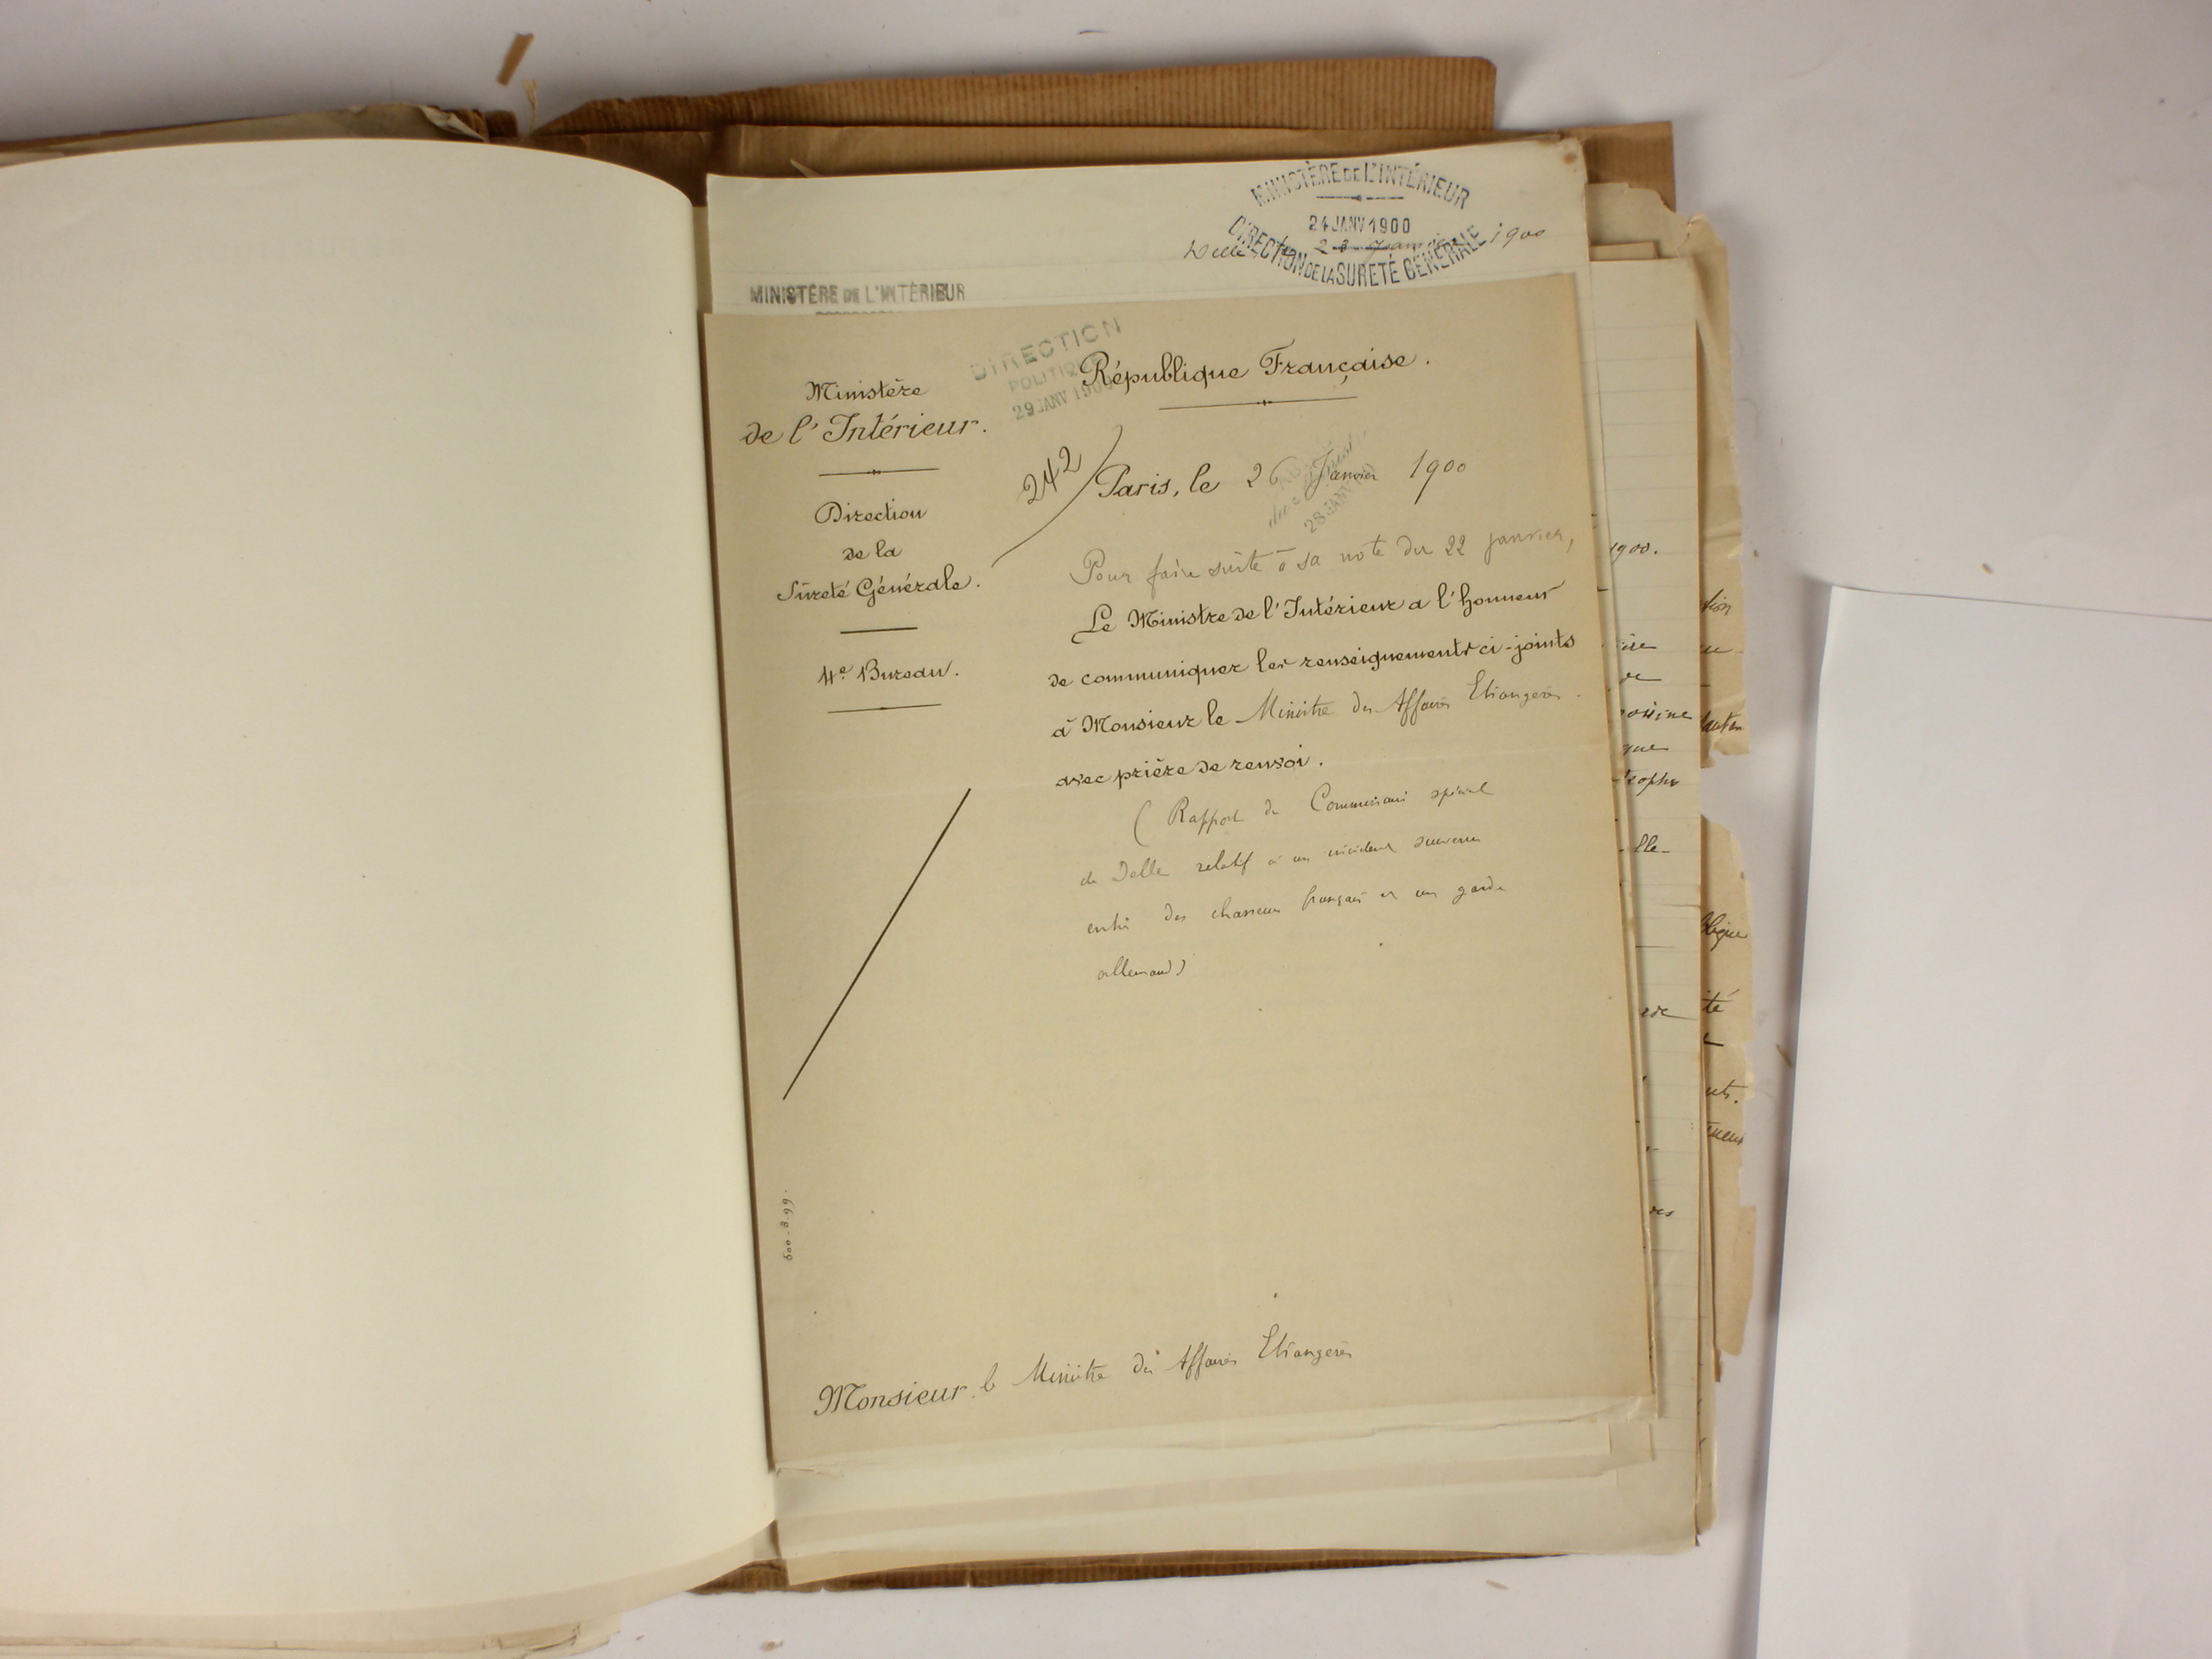 MINISTÈRE DE L'INTÉRIEUR
24 JANV 1900
DIRECTION DE LA SURETÉ GÉNÉRALE
Delle 23 Janvier 1900
MINISTÈRE DE L'INTÉRIEUR
DIRECTION
POLITIQUE
29 JANV 1900
Ministère
de l'Intérieur.
Direction
de la
Sûreté Générale.
4e Bureau.
République Française.
242
Paris, le 26 Janvier 1900
28 JANV
Pour faire suite à sa note du 22 janvier,
Le Ministre de l'Intérieur a l'honneur
de communiquer les renseignements ci-joints
à Monsieur le Ministre des Affaires Etrangères.
avec prière de renvoi.
( Rapport du Commissaire spécial
de Delle relatif à un incident survenu
entre des chasseurs français et un garde
allemand )
600-8-99.
Monsieur le Ministre des Affaires Etrangères
1900.
que
lle
té